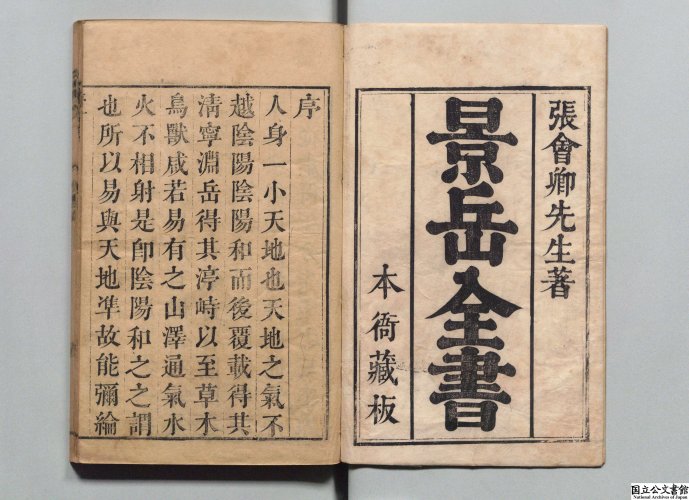 張會卿先生著
景岳全書
本衙藏板
序
人身一小天地也天地之氣不
越陰陽陰陽和而後覆載得其
淸寧淵岳得其渟峙以至草木
鳥獸咸若易有之山澤通氣水
火不相射是卽陰陽和之之謂
也所以易與天地凖故能彌綸
国立公文書館
National Archives of Japan